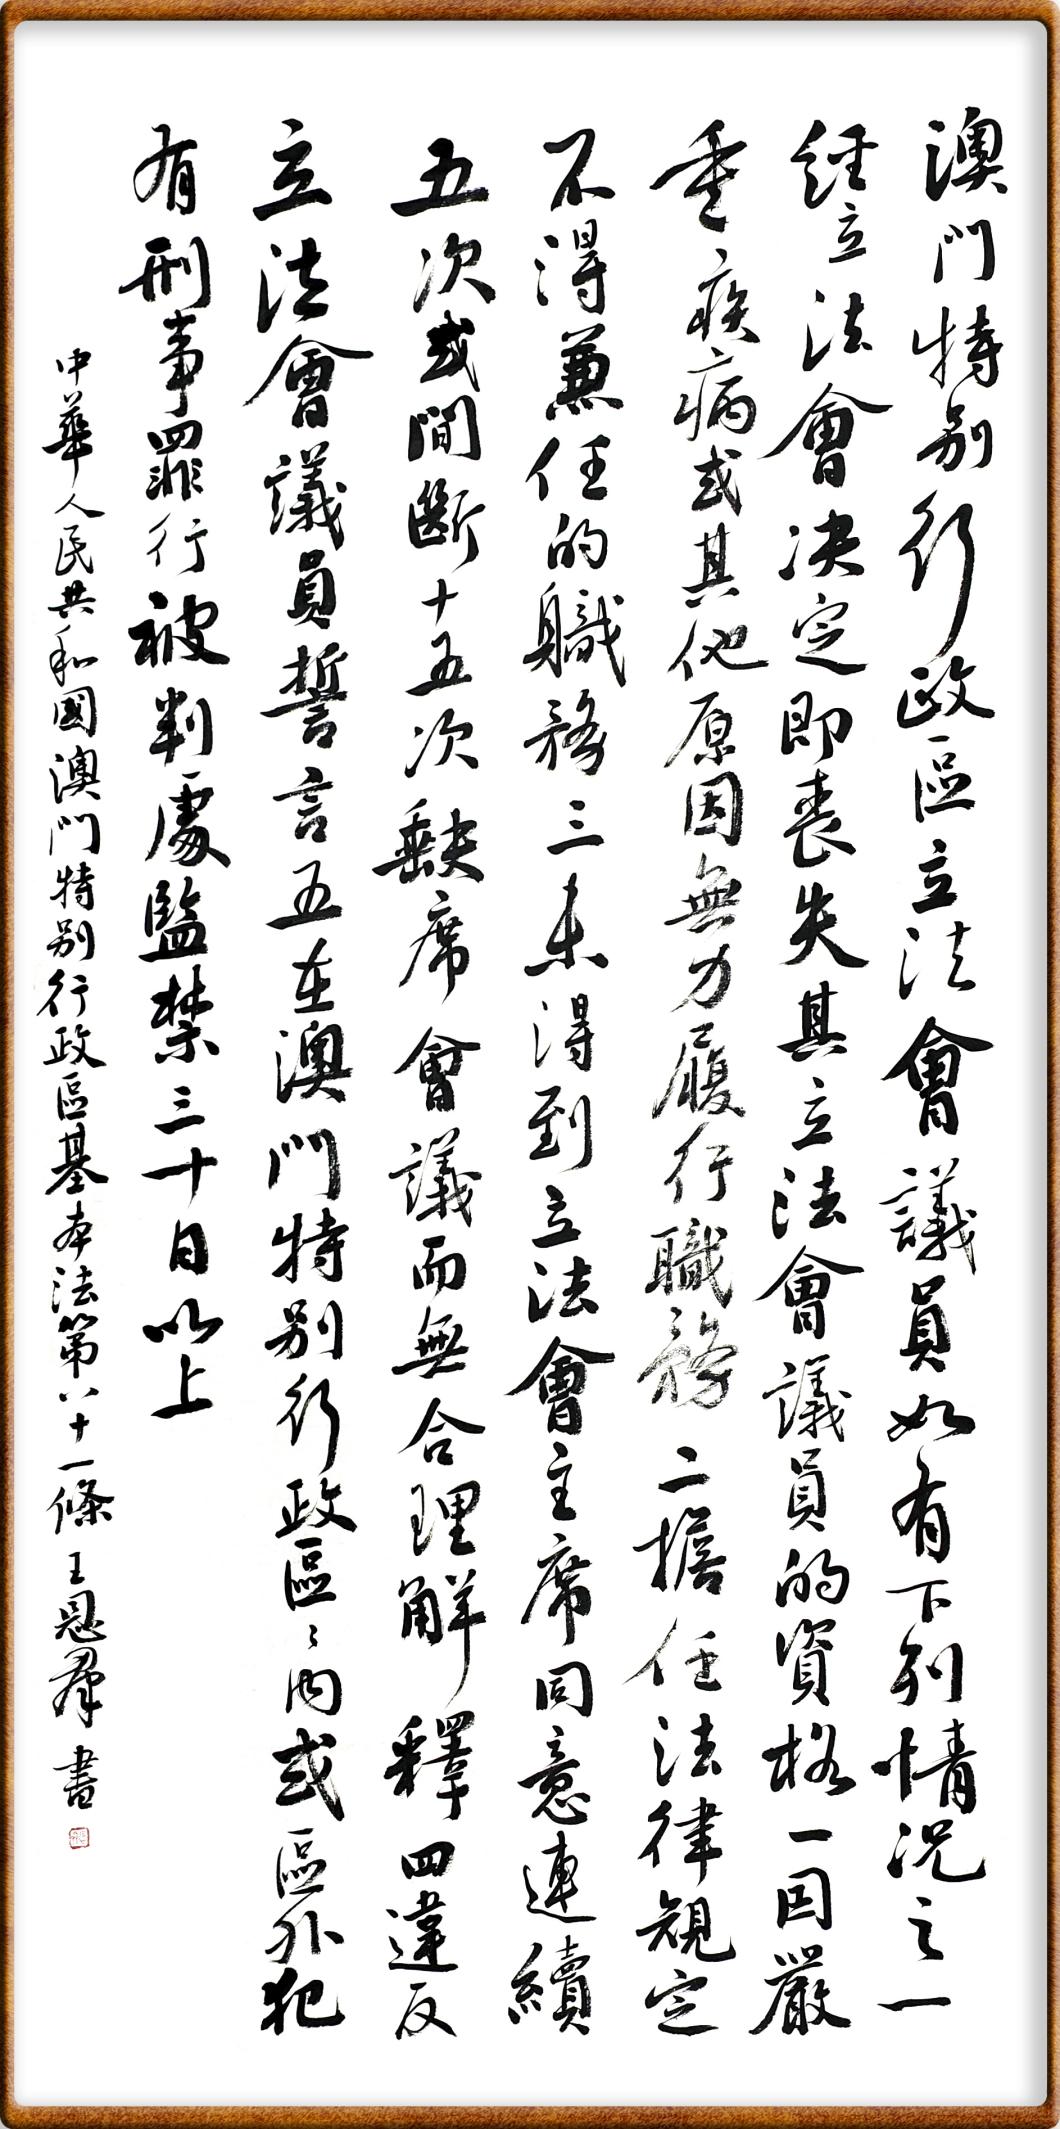 澳門特别行政區立法會議員如有下列情况之一
經立法會決定即喪失其立法會議員的資格一因嚴
重疾病或其他原因無力履行職務二擔任法律規定
不得兼任的職務三未得到立法會主席同意連續
五次或間斷十五次缺席會議而無合理解釋四違反
立法會議員誓言五在澳門特别行政區區内或區外犯
有刑事罪行被判處監禁三十日以上
中華人民共和國澳門特别行政區基本法第八十一條 王恩群 書